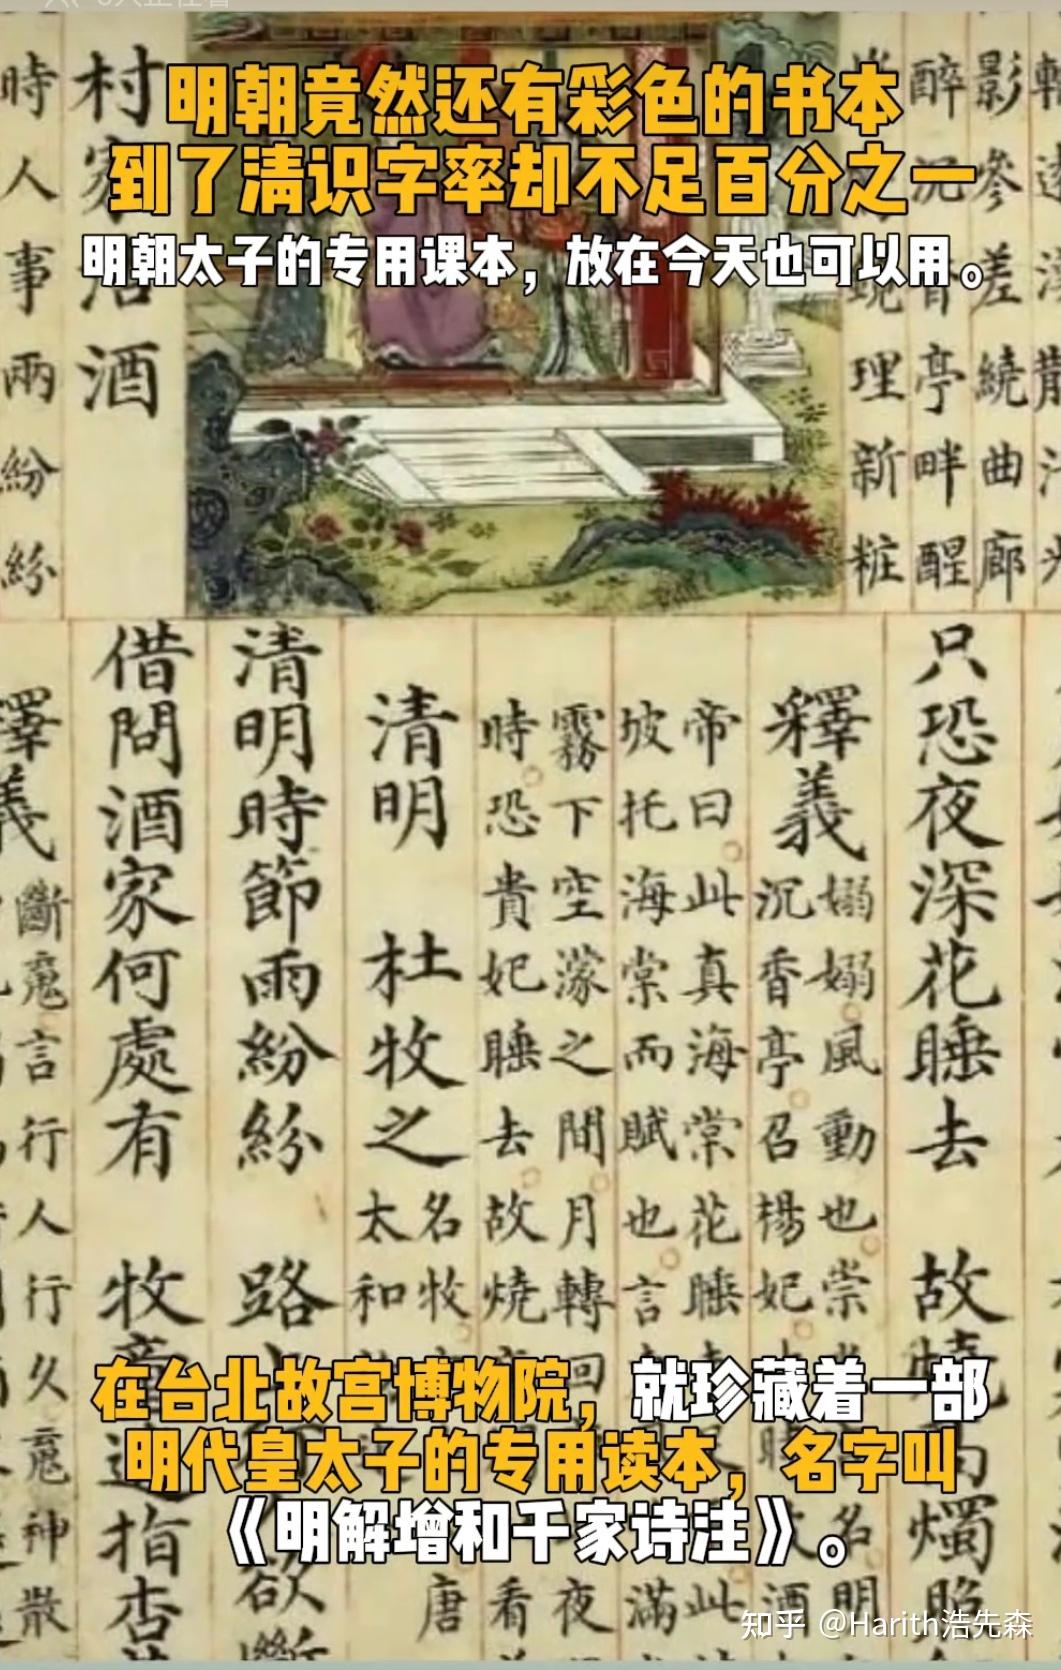 明朝竟然还有彩色的书本
到了清识字率却不足百分之一
明朝太子的专用课本，放在今天也可以用。
影參差繞曲廊
醉
亭畔醒
理新粧
村
酒
時人事兩紛紛
只恐夜深花睡去 故燒
燭
釋義
嫋嫋風動也崇
沉香亭召楊妃
帝曰此真海棠花睡
此
坡托海棠而賦也言
滿
霧下空濛之間月轉回
夜
時恐貴妃睡去故燒
看
清明 杜牧之
名牧
太和
唐
清明時節雨紛紛 路
欲斷
借問酒家何處有 牧童
指杏
釋義
斷魂言行人行久魂神散
在台北故宫博物院，就珍藏着一部
明代皇太子的专用读本，名字叫
《明解增和千家诗注》。
知乎 @Harith浩先森